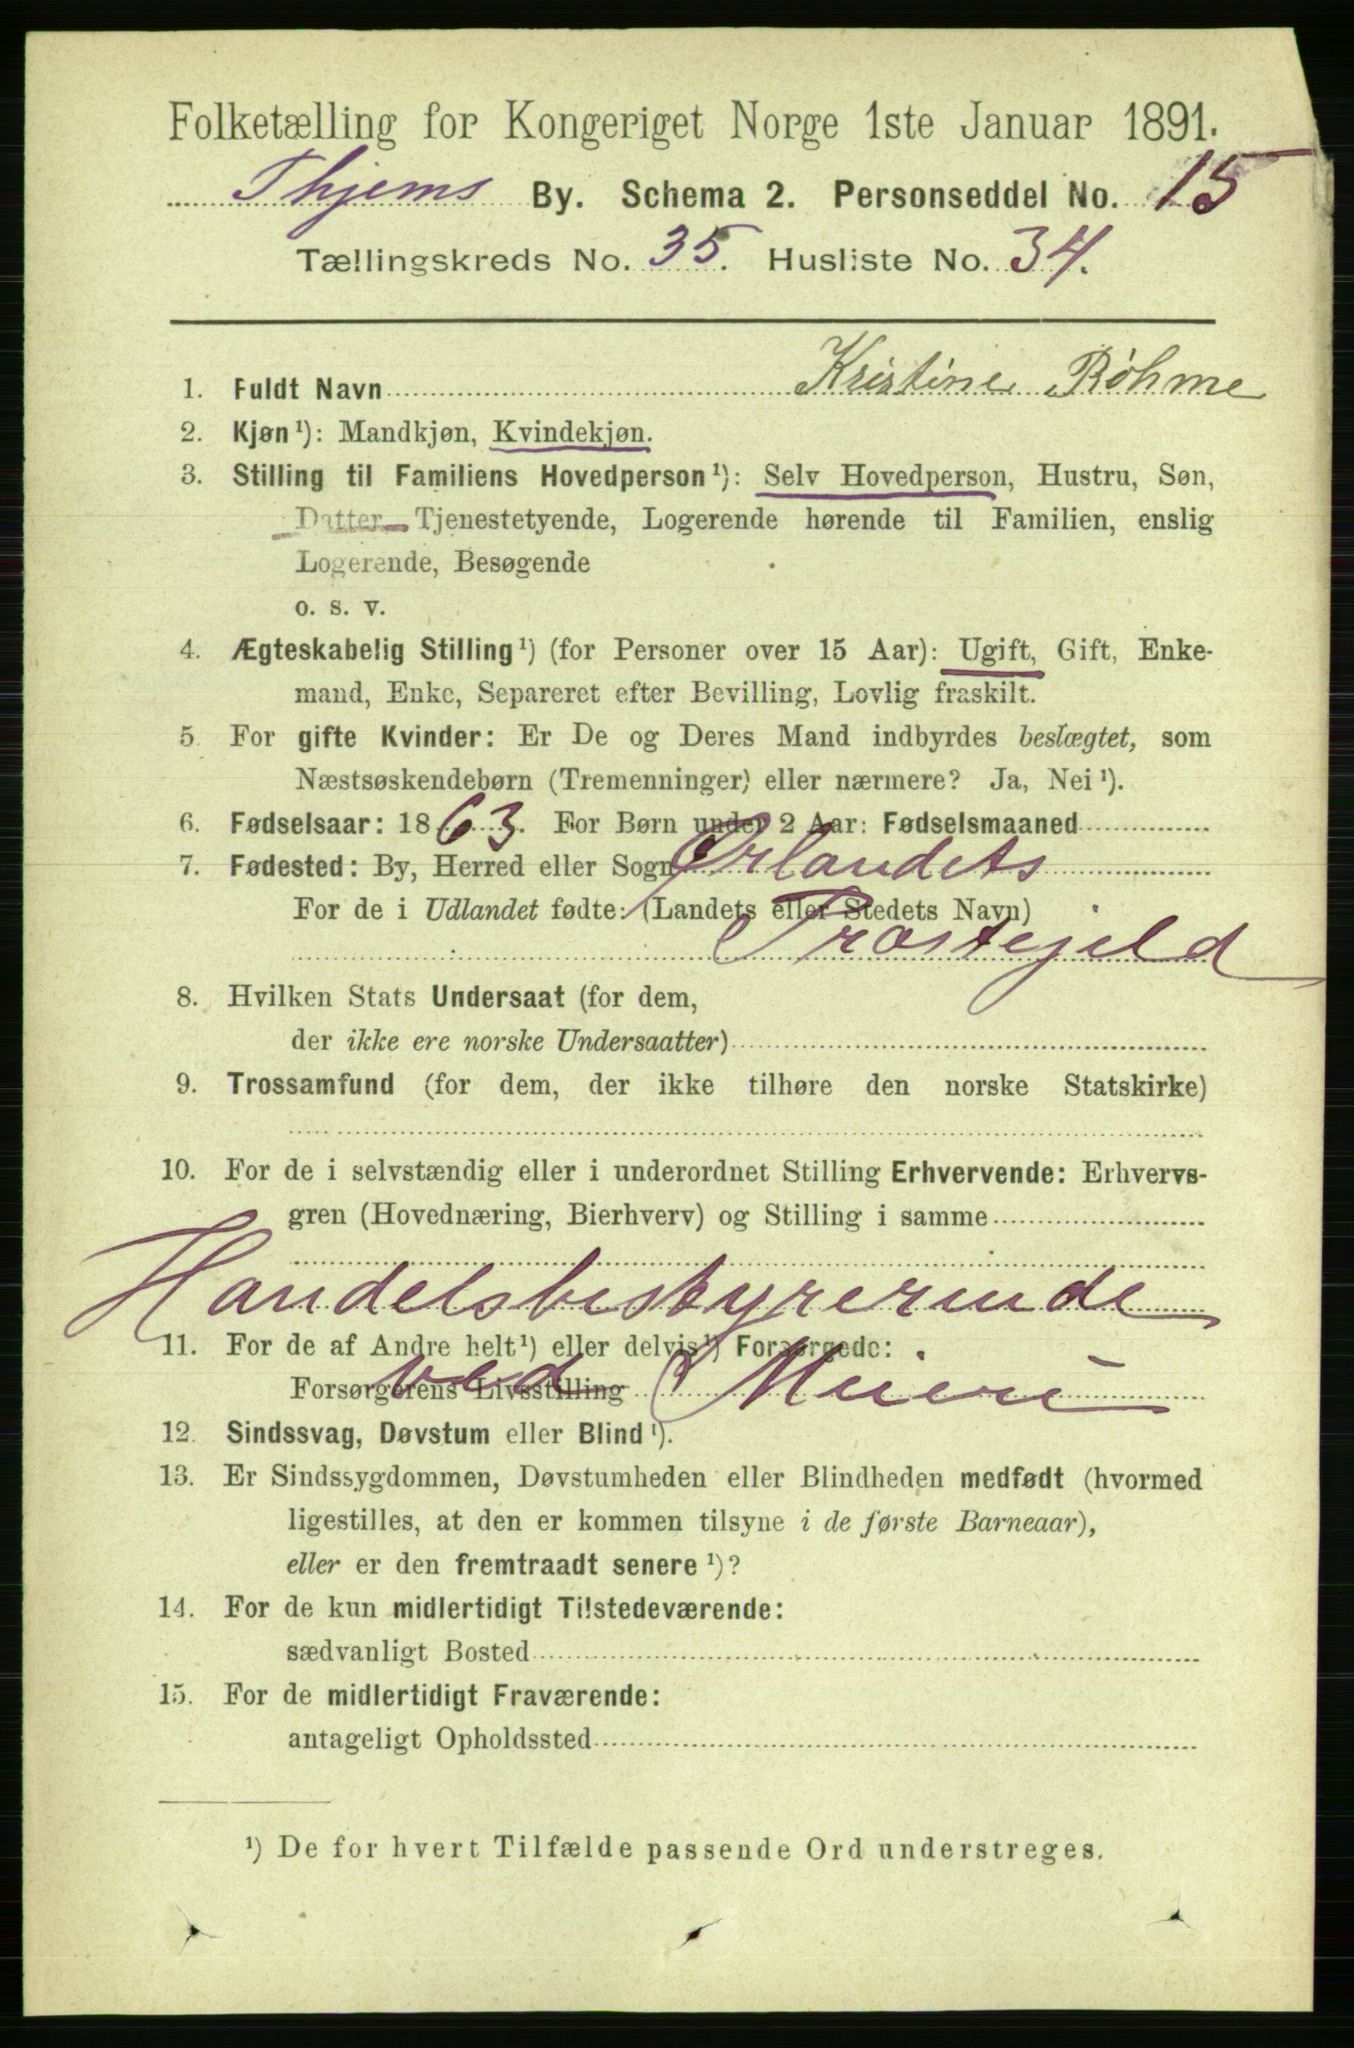 Folketælling for Kongeriget Norge 1ste Januar 1891.
Thjems By. Schema 2. Personseddel No. 15
Tællingskreds No. 35. Husliste No. 34.
1. Fuldt Navn Kristine Røhme
2. Kjøn ¹): Mandkjøn, Kvindekjøn.
3. Stilling til Familiens Hovedperson ¹): Selv Hovedperson, Hustru, Søn,
Datter, Tjenestetyende, Logerende hørende til Familien, enslig
Logerende, Besøgende
o. s. v.
4. Ægteskabelig Stilling ¹) (for Personer over 15 Aar): Ugift, Gift, Enke-
mand, Enke, Separeret efter Bevilling, Lovlig fraskilt.
5. For gifte Kvinder: Er De og Deres Mand indbyrdes beslægtet, som
Næstsøskendebørn (Tremenninger) eller nærmere? Ja, Nei ¹).
6. Fødselsaar: 1863. For Børn under 2 Aar: Fødselsmaaned
7. Fødested: By, Herred eller Sogn Ørlandets
For de i Udlandet fødte: (Landets eller Stedets Navn)
Præstegjeld
8. Hvilken Stats Undersaat (for dem,
der ikke ere norske Undersaatter)
9. Trossamfund (for dem, der ikke tilhøre den norske Statskirke)
10. For de i selvstændig eller i underordnet Stilling Erhvervende: Erhvervs-
gren (Hovednæring, Bierhverv) og Stilling i samme
Handelsbestyrerinde
11. For de af Andre helt ¹) eller delvis ¹) Forsørgede:
Forsørgerens Livsstilling
ved Meieri
12. Sindssvag, Døvstum eller Blind ¹).
13. Er Sindssygdommen, Døvstumheden eller Blindheden medfødt (hvormed
ligestilles, at den er kommen tilsyne i de første Barneaar),
eller er den fremtraadt senere ¹)?
14. For de kun midlertidigt Tilstedeværende:
sædvanligt Bosted
15. For de midlertidigt Fraværende:
antageligt Opholdssted
¹) De for hvert Tilfælde passende Ord understreges.